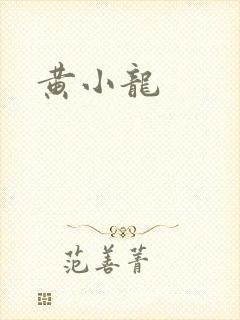 黄小龍
范善菁